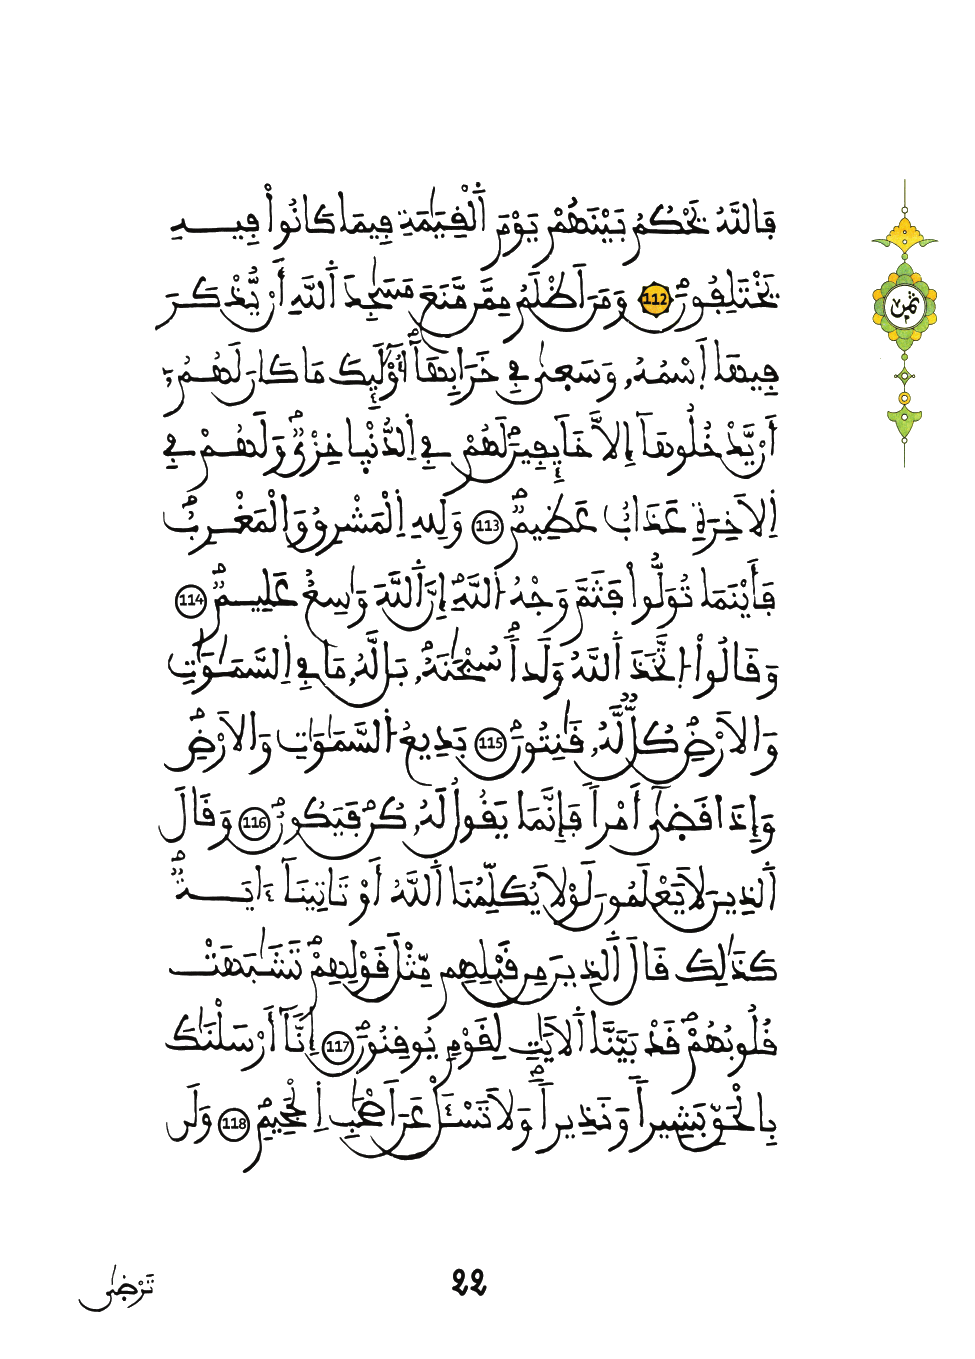 فَاللَّهُ يَحْكُمُ بَيْنَهُمْ يَوْمَ اَلْقِيَٰمَةِ فِيمَا كَانُواْ فِيهِ
يَخْتَلِفُونَۖ 112 وَمَنَ اَظْلَمُ مِمَّن مَّنَعَ مَسَٰجِدَ اَللَّهِ أَنْ يُّذْكَرَ
فِيهَا اَسْمُهُۥ وَسَعَىٰ فِي خَرَابِهَآۖ أُوْلَٰٓئِكَ مَا كَانَ لَهُمُۥٓ
أَنْ يَّدْخُلُوهَآ إِلَّا خَآئِفِينَۖ لَهُمْ فِي اِلدُّنْيَا خِزْيٌۖ وَلَهُمْ فِي
اِلَاخِرَةِ عَذَابٌ عَظِيمٌۖ 113 وَلِلهِ اِلْمَشْرِقُ وَالْمَغْرِبُۖ
فَأَيْنَمَا تُوَلُّواْ فَثَمَّ وَجْهُ اُللَّهِۖ إِنَّ اَللَّهَ وَٰسِعٌ عَلِيمٌۖ 114
وَقَالُواْ اُتَّخَذَ اَللَّهُ وَلَداًۖ سُبْحَٰنَهُۥۖ بَل لَّهُۥ مَا فِي اِلسَّمَٰوَٰتِ
وَالَارْضِۖ كُلٌّ لَّهُۥ قَٰنِتُونَۖ 115 بَدِيعُ اُلسَّمَٰوَٰتِ وَالَارْضِۖ
وَإِذَا قَضَىٰٓ أَمْراً فَإِنَّمَا يَقُولُ لَهُۥ كُن فَيَكُونُۖ 116 وَقَالَ
اَلذِينَ لَا يَعْلَمُونَ لَوْلَا يُكَلِّمُنَا اَللَّهُ أَوْ تَاتِينَآ ءَايَةٌۖ
كَذَٰلِكَ قَالَ اَلذِينَ مِن قَبْلِهِم مِّثْلَ قَوْلِهِمْۖ تَشَٰبَهَتْ
قُلُوبُهُمْۖ قَدْ بَيَّنَّا اَلَايَٰتِ لِقَوْمٍ يُوقِنُونَۖ 117 إِنَّآ أَرْسَلْنَٰكَ
بِالْحَقِّ بَشِيراً وَنَذِيراًۖ وَلَا تَسْـَٔلْ عَنَ اَصْحَٰبِ اِلْجَحِيمِۖ 118 وَلَن
ثمن
تَرْضَىٰ
22